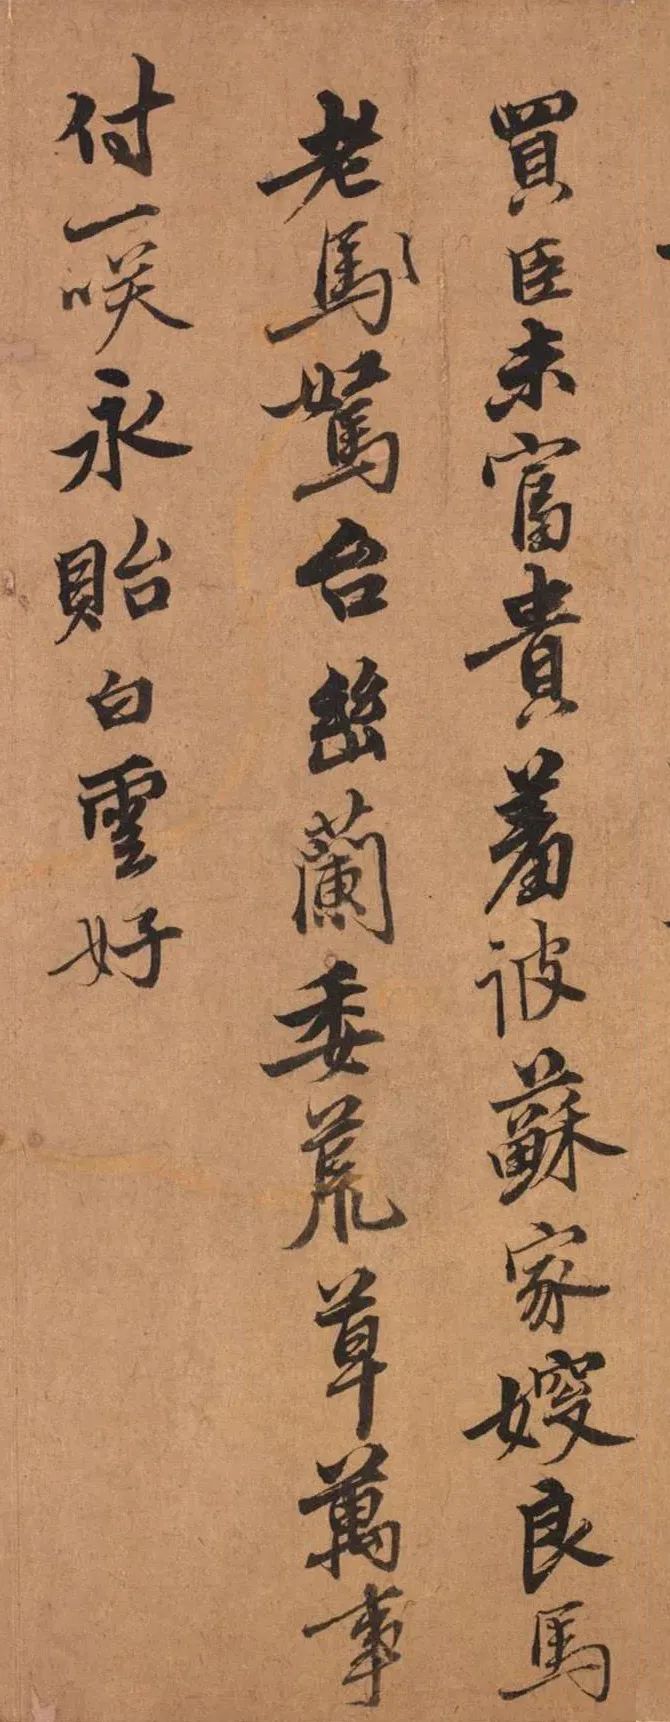 買臣未富貴羞被蘇家嫂良馬
老馬駑台幽蘭委荒草萬事
付一咲永貽白雲好